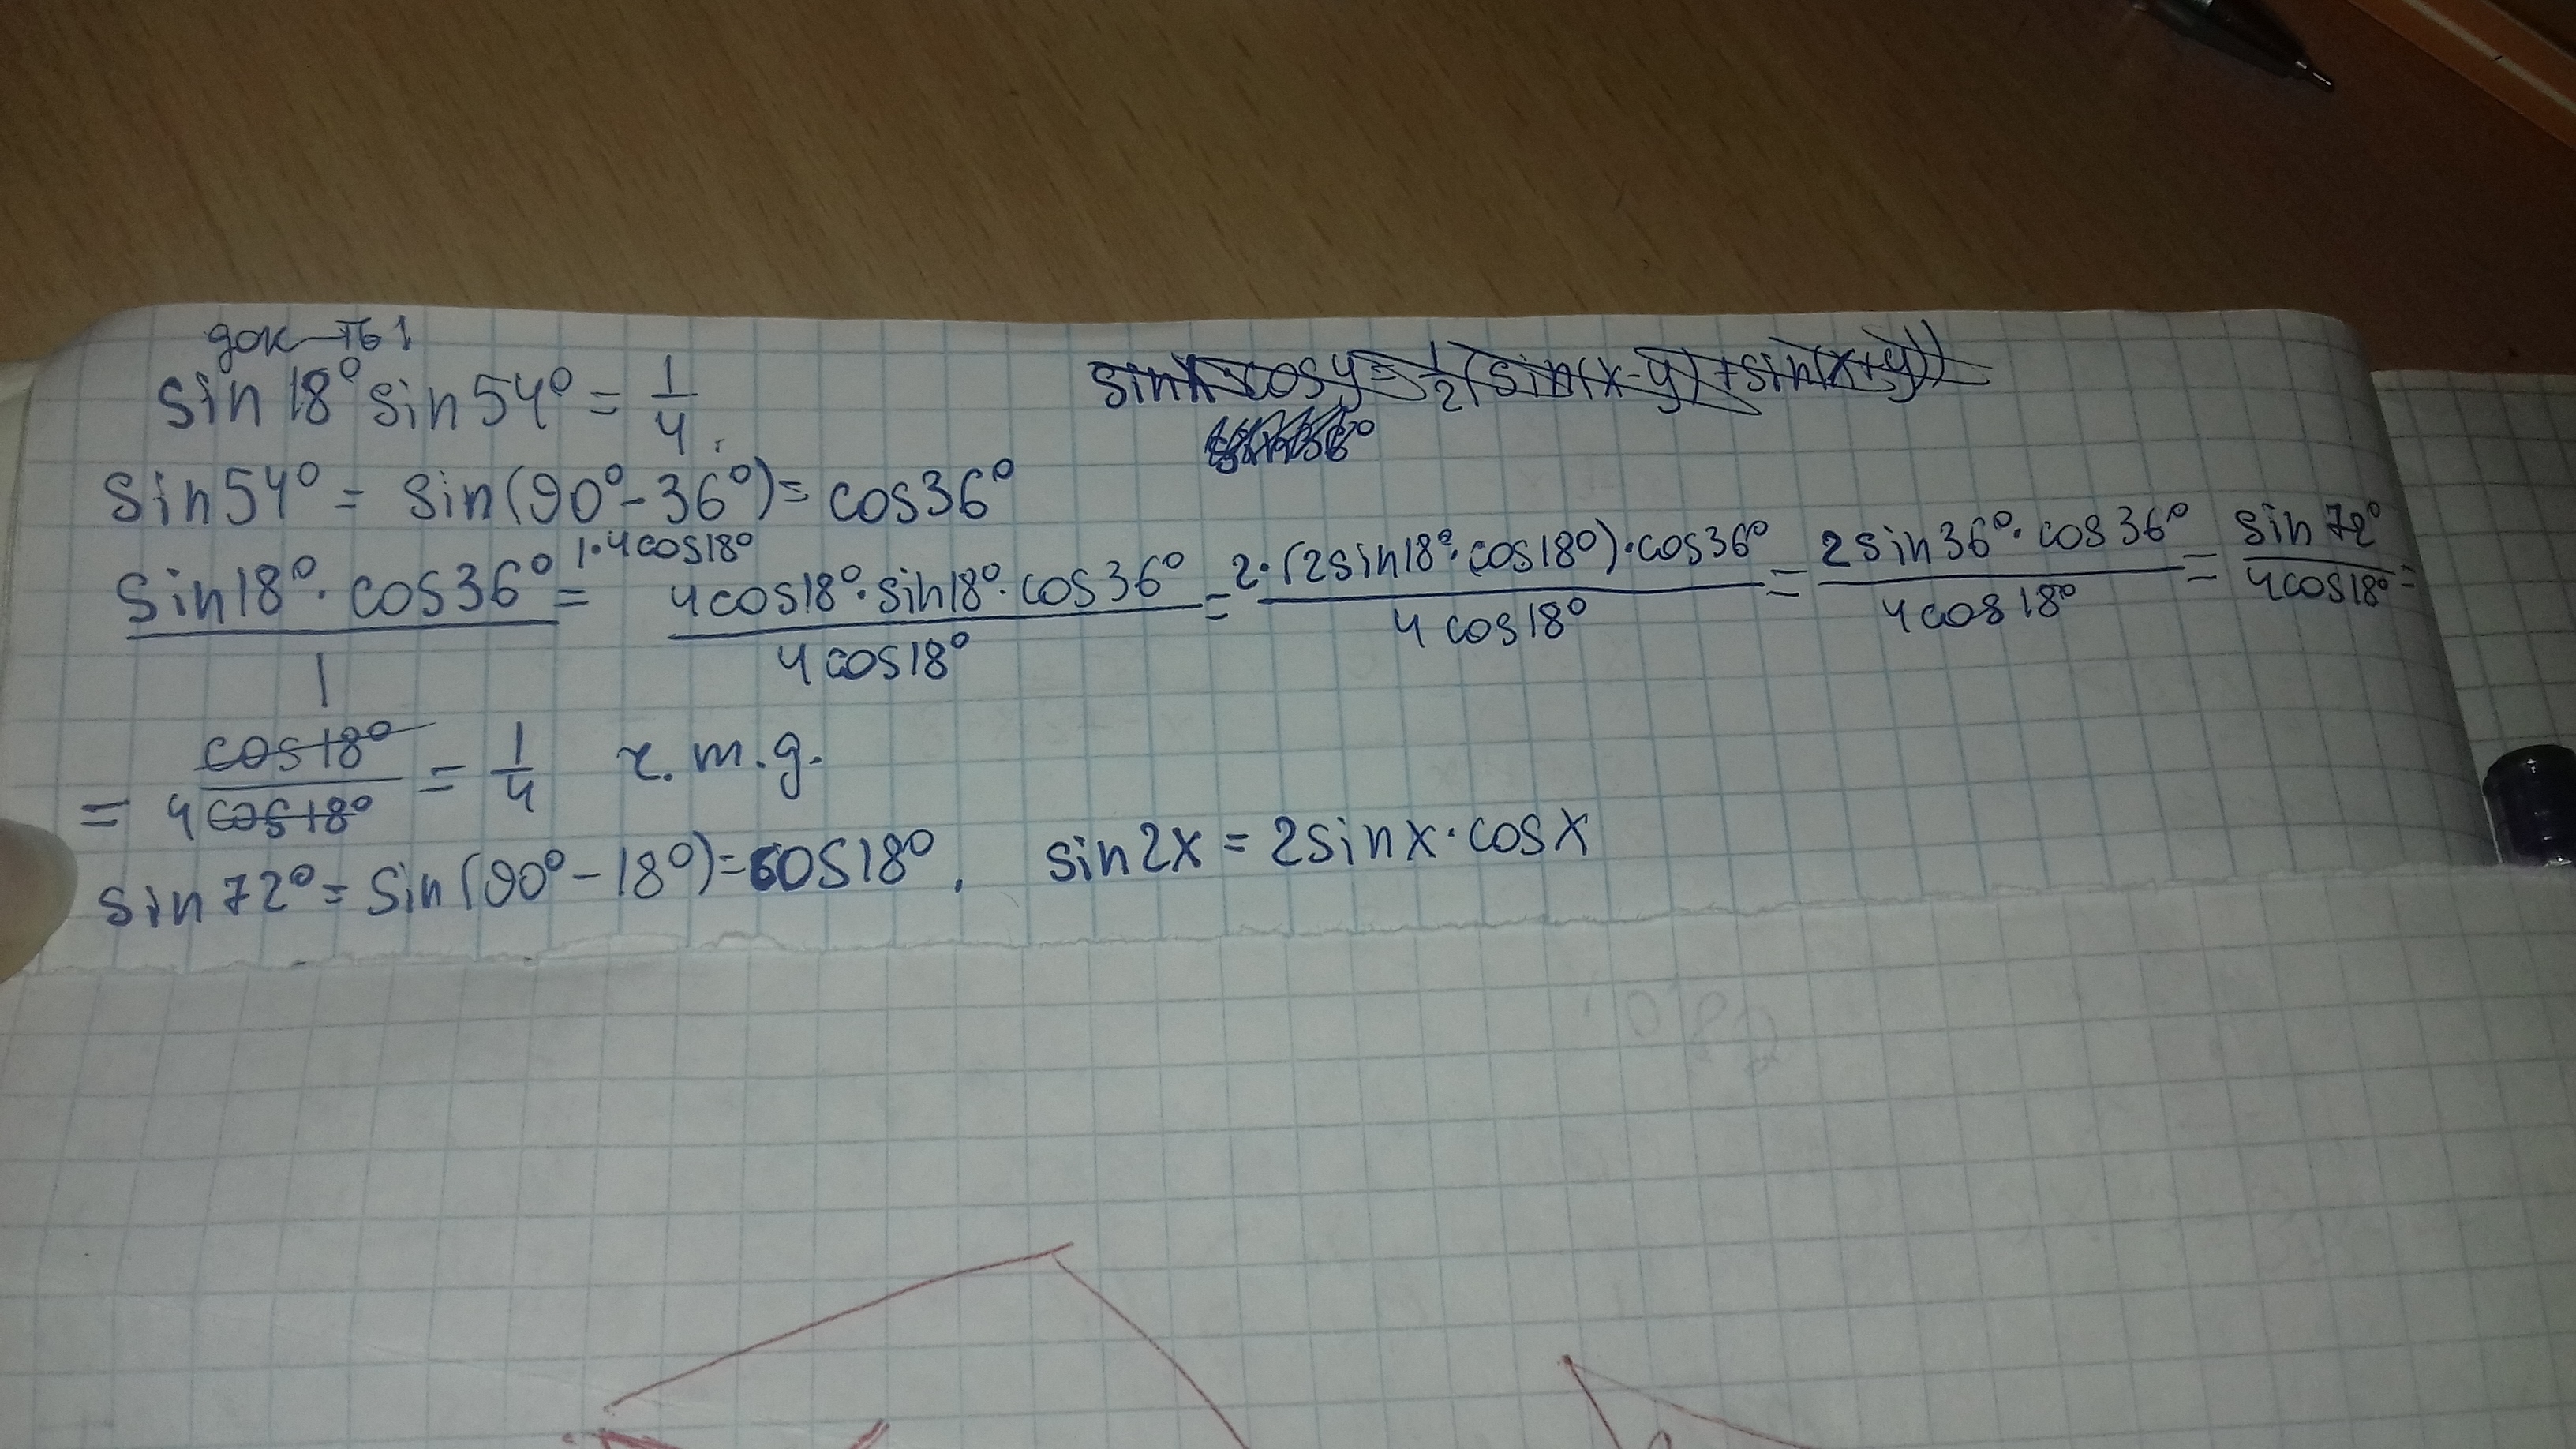 док-ть!
sin18° sin54° = 1/4.
sinx·cosy = 1/2(sin(x-y)+sin(x+y))
sin54° = sin(90°-36°) = cos36°
(sin18°·cos36°)/1 = 1·4cos18° (4cos18°·sin18°·cos36°)/(4cos18°) = (2·(2sin18°·cos18°)·cos36°)/(4cos18°) = (2sin36°·cos36°)/(4cos18°) = sin72°/(4cos18°) =
= cos18°/(4cos18°) = 1/4 ч.т.д.
sin72° = sin(90°-18°)=cos18°, sin2x = 2sinx·cosx